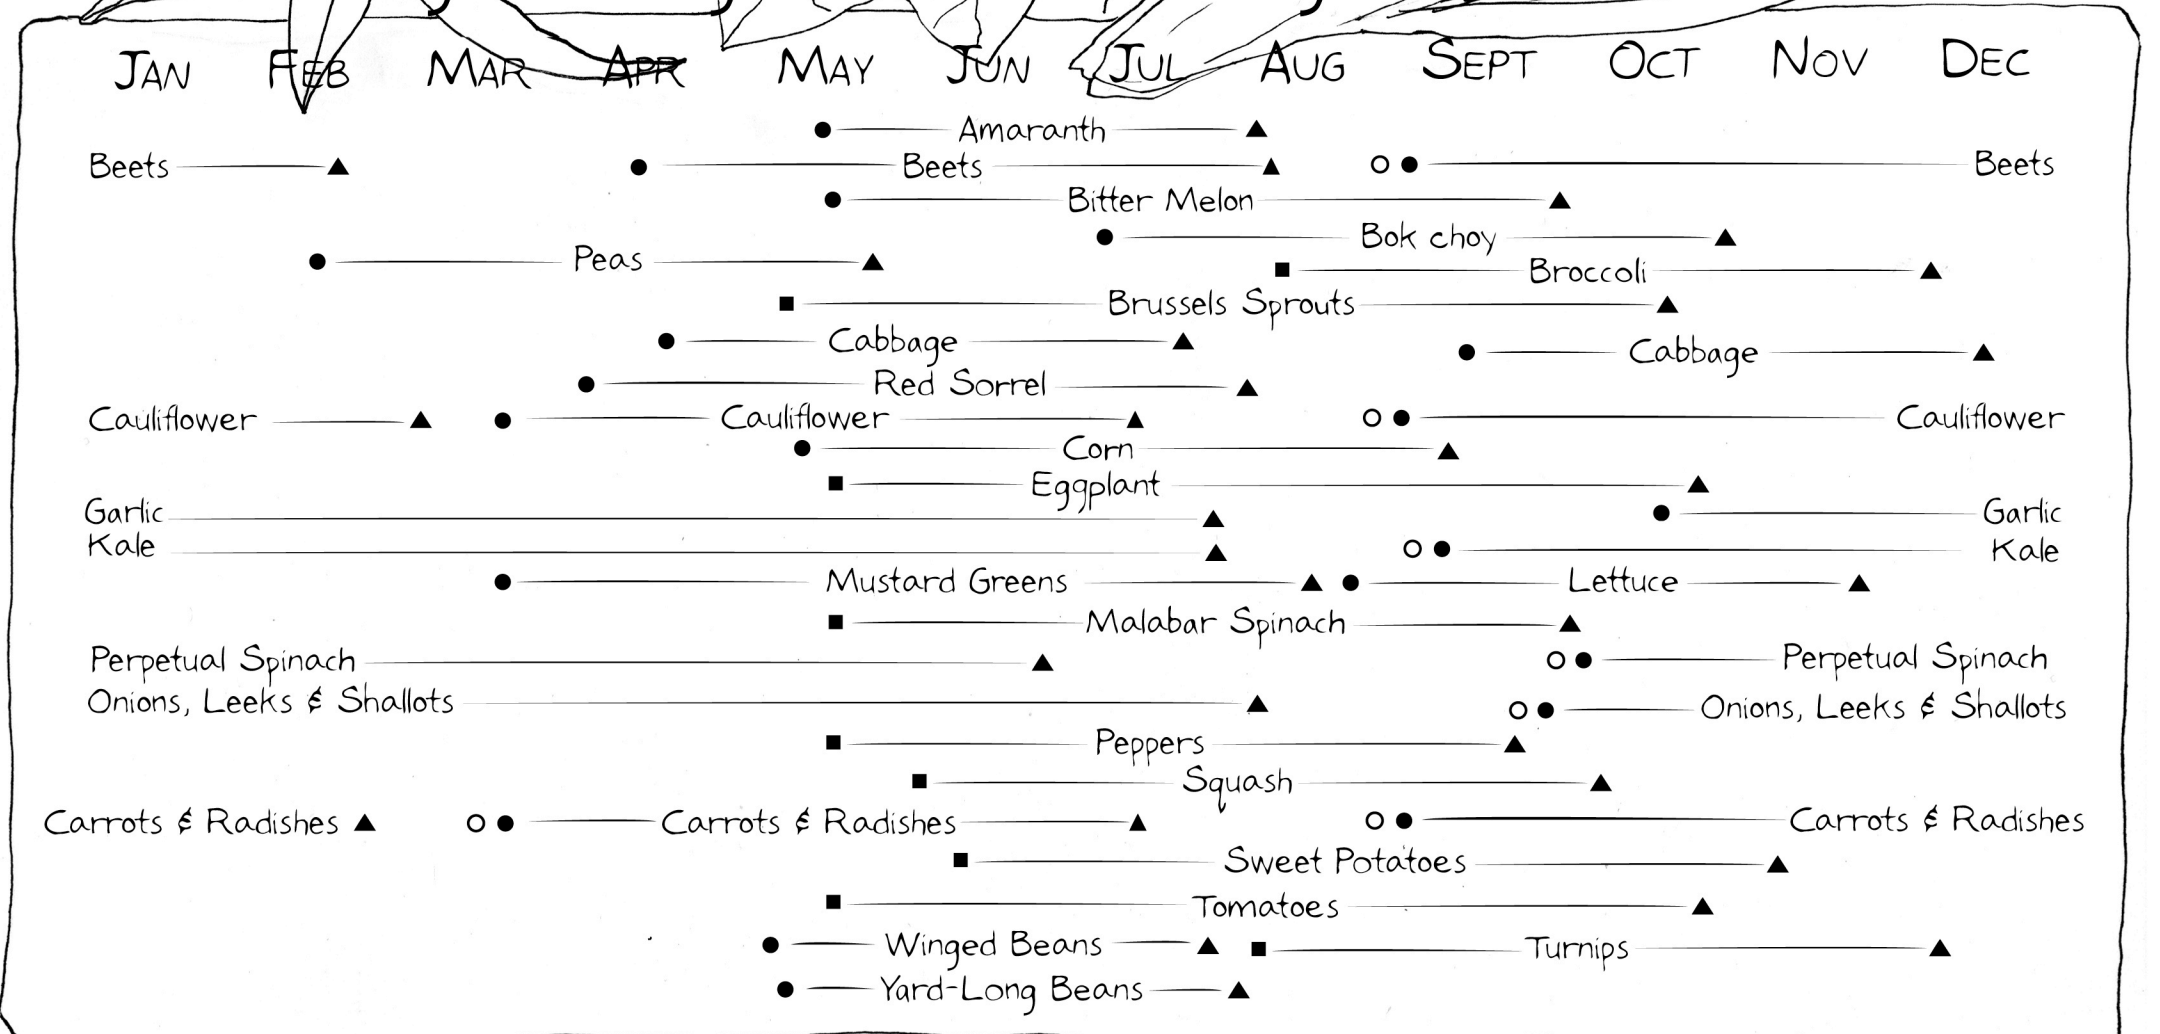 JAN FEB MAR APR MAY JUN JUL AUG SEPT OCT NOV DEC
Amaranth
Beets Beets Beets
Bitter Melon
Bok choy
Peas
Broccoli
Brussels Sprouts
Cabbage Cabbage
Red Sorrel
Cauliflower Cauliflower Cauliflower
Corn
Eggplant
Garlic Garlic
Kale Kale
Mustard Greens Lettuce
Malabar Spinach
Perpetual Spinach Perpetual Spinach
Onions, Leeks & Shallots Onions, Leeks & Shallots
Peppers
Squash
Carrots & Radishes Carrots & Radishes Carrots & Radishes
Sweet Potatoes
Tomatoes
Winged Beans Turnips
Yard-Long Beans